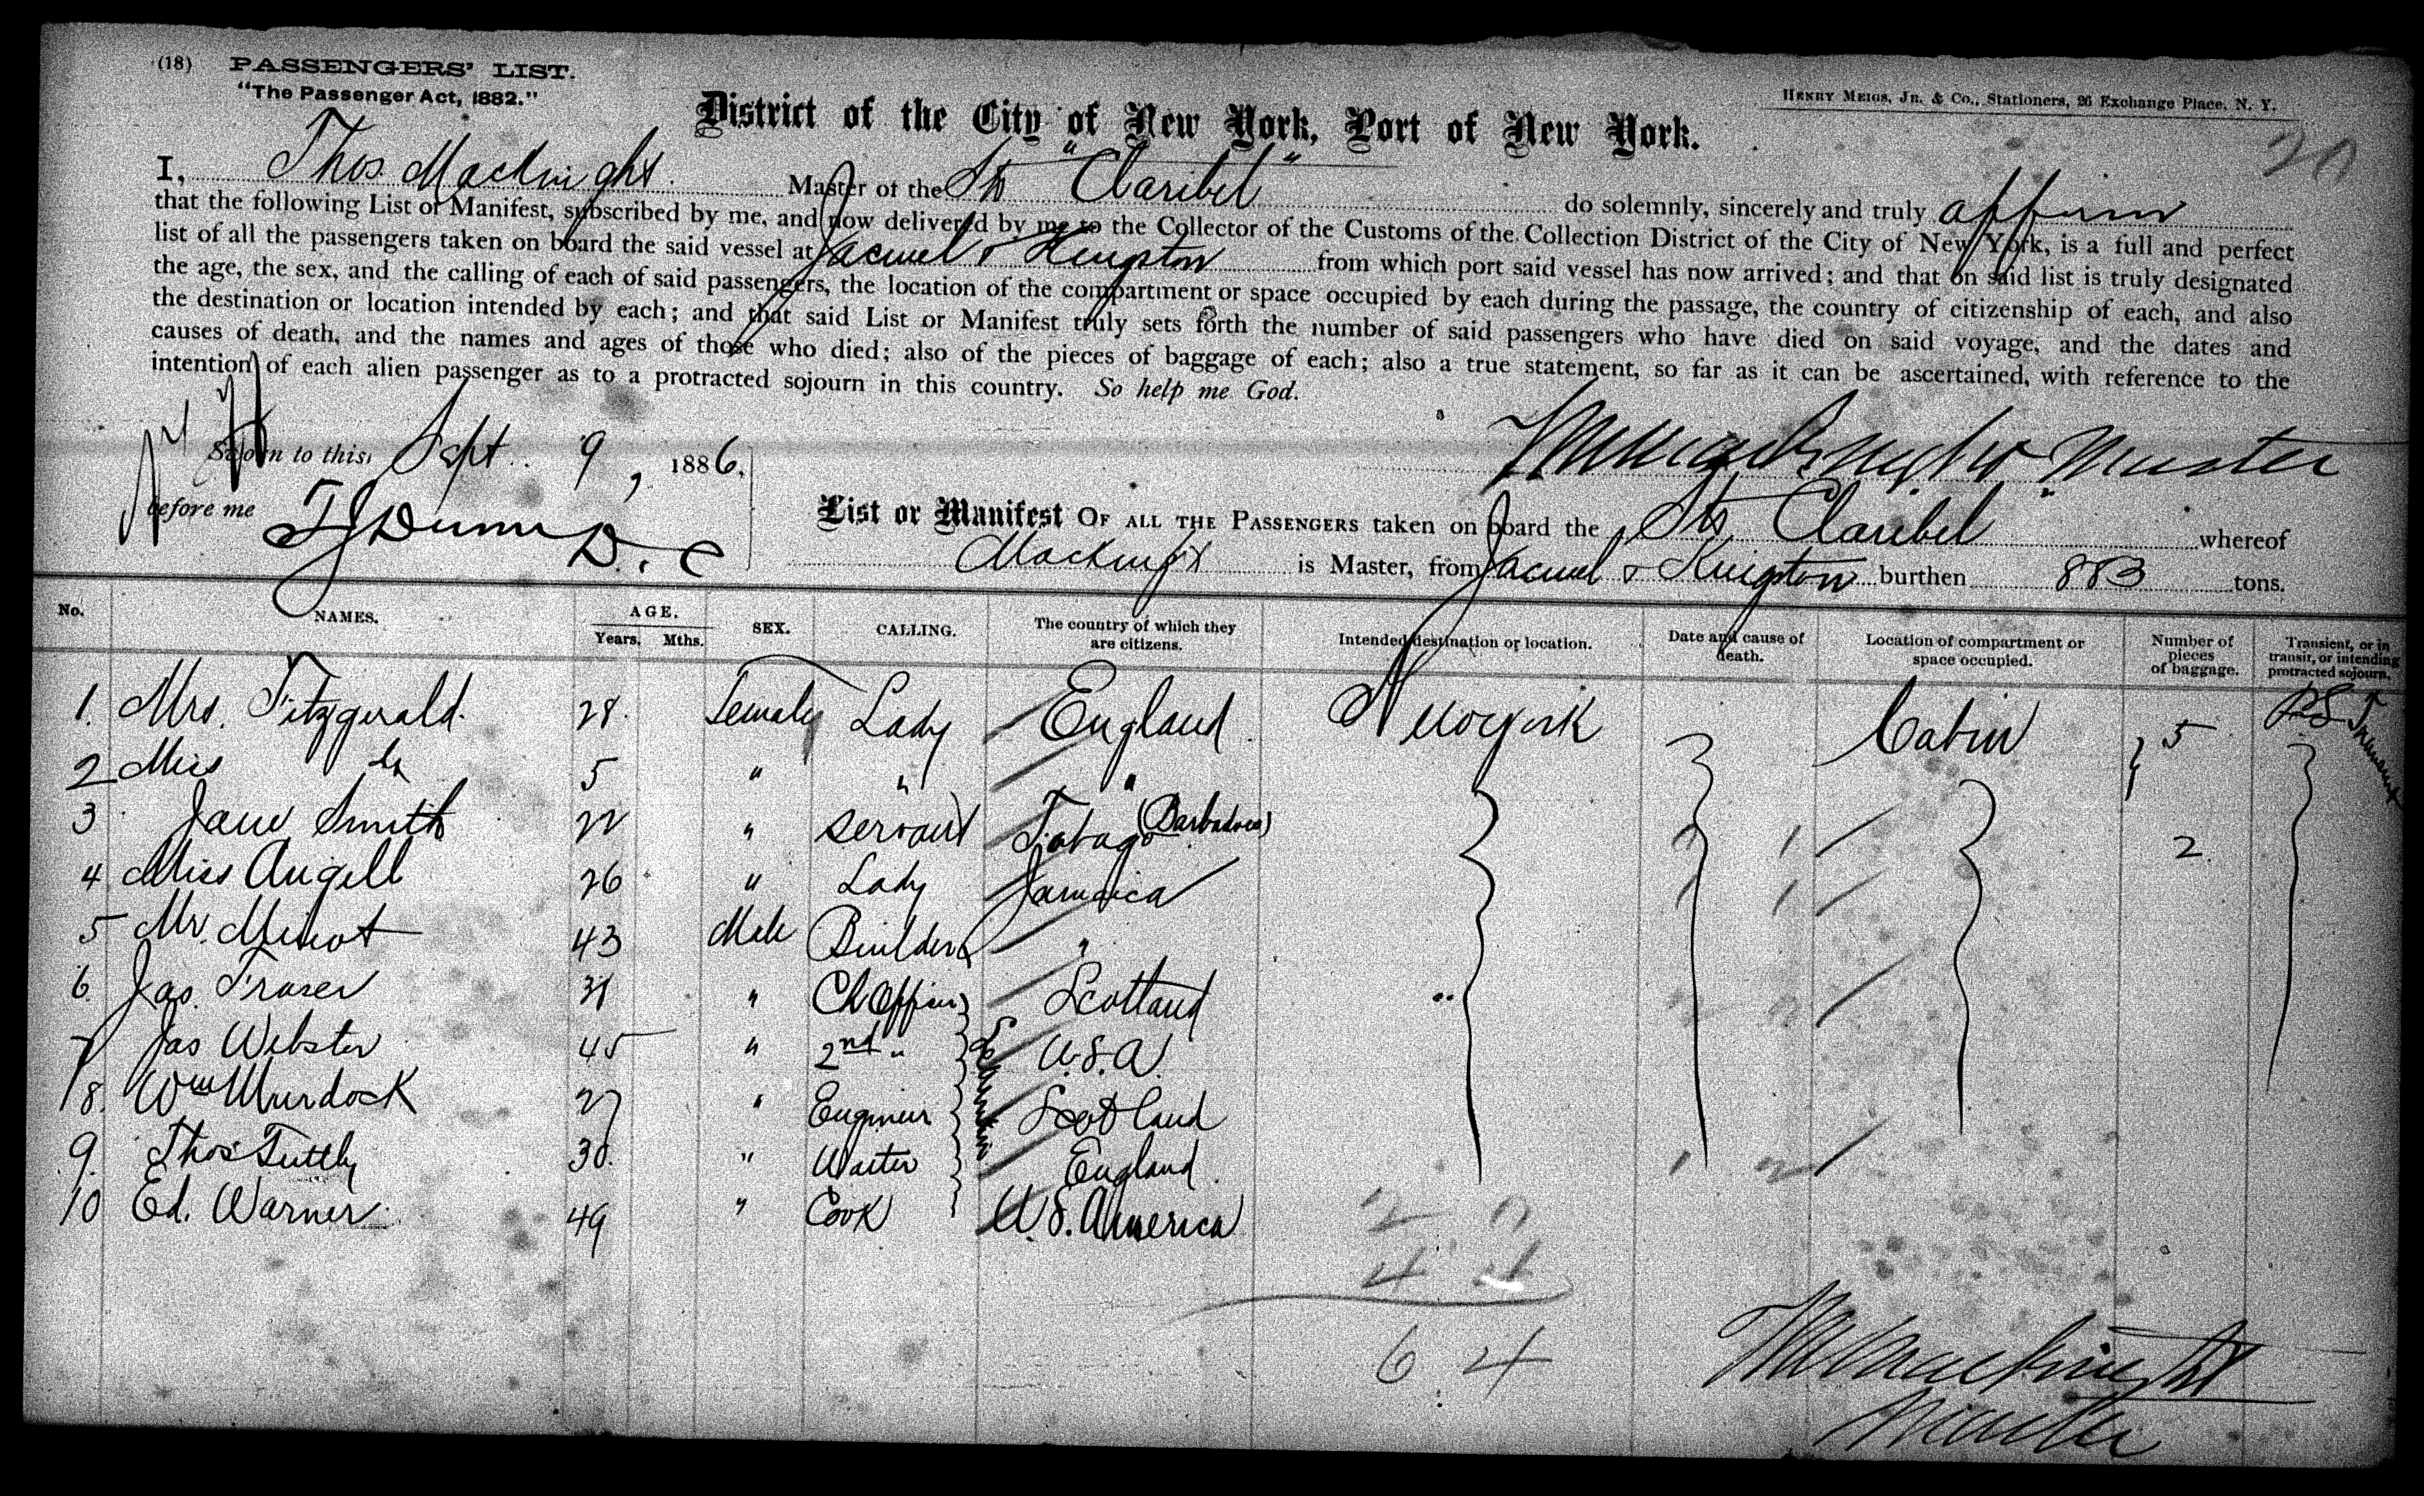 (18) PASSENGERS' LIST.
"The Passenger Act, 1882."
HENRY MEIGS, JR. & CO., Stationers, 26 Exchange Place, N. Y.
District of the City of New York, Port of New York.
20
I, Thos. Macknight Master of the Sts "Claribel" do solemnly, sincerely and truly affirm
that the following List or Manifest, subscribed by me, and now delivered by me to the Collector of the Customs of the Collection District of the City of New York, is a full and perfect
list of all the passengers taken on board the said vessel at Jacmel & Kingston from which port said vessel has now arrived; and that on said list is truly designated
the age, the sex, and the calling of each of said passengers, the location of the compartment or space occupied by each during the passage, the country of citizenship of each, and also
the destination or location intended by each; and that said List or Manifest truly sets forth the number of said passengers who have died on said voyage, and the dates and
causes of death, and the names and ages of those who died; also of the pieces of baggage of each; also a true statement, so far as it can be ascertained, with reference to the
intention of each alien passenger as to a protracted sojourn in this country. So help me God.
Sworn to this, Sept. 9, 1886.
Macknight Master
before me T J Dunn D. C
List or Manifest OF ALL THE PASSENGERS taken on board the Sts "Claribel" whereof
Macknight is Master, from Jacmel & Kingston burthen 883 tons.
No. NAMES. AGE. Years. Mths. SEX. CALLING. The country of which they are citizens. Intended destination or location. Date and cause of death. Location of compartment or space occupied. Number of pieces of baggage. Transient, or in transit, or intending protracted sojourn.
1. Mrs. Fitzgerald. 28. Female Lady England Newyork Cabin 5 Transient
2 Miss do 5 " " "
3 Jane Smith 22 " Servant Tobago (Barbadoes)
4 Miss Angell 26 " Lady Jamaica 2.
5 Mr. Minot 43 Male Builder "
6. Jas. Fraser 31 " Ch Officer Scotland
7 Jas Webster 45 " 2nd " U.S.A.
8. Wm Murdock 27 " Engineer Scotland
9. Thos Tuttly 30. " Waiter England
10 Ed. Warner 49 " Cook U.S. America
6 4
Macknight
Master